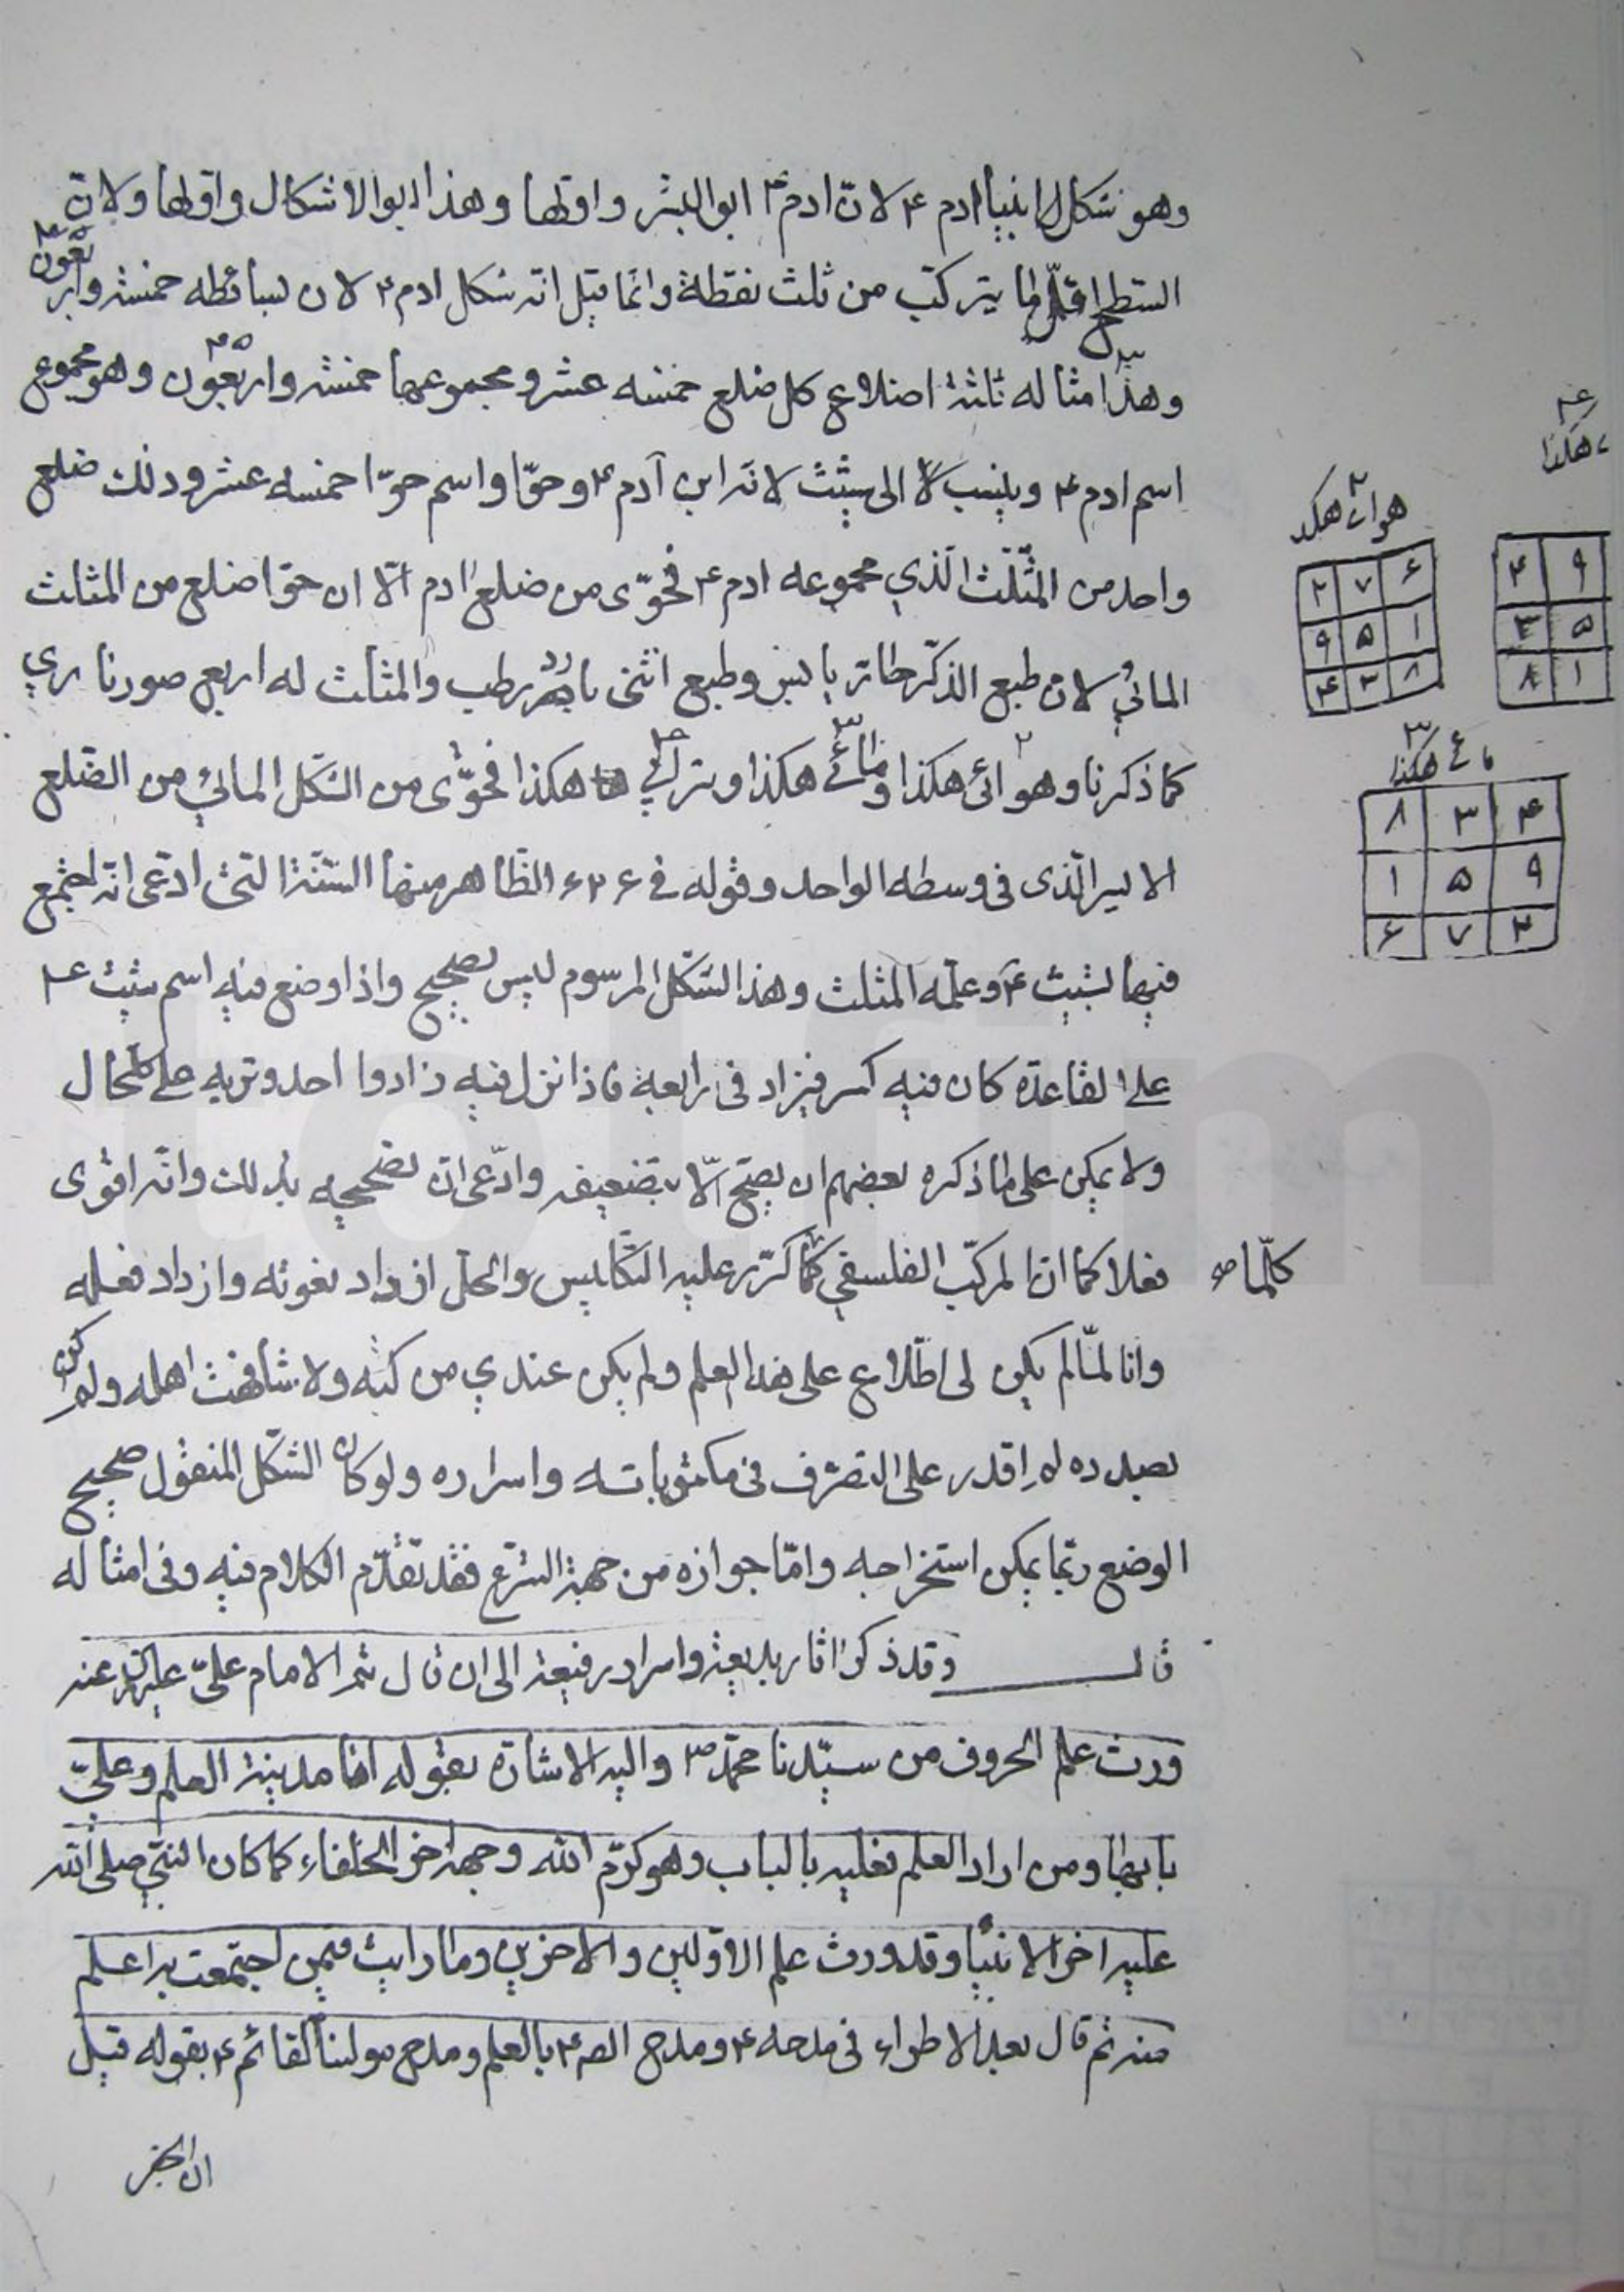 وهو شكل ابينا ادم ٤ لان ادم ٤ ابو البشر واولها وهذا ابو الاشكال واولها ولان
السطح اقل ما يتركب من ثلث نقطة وانما قيل انه شكل ادم ٤ لان بسائطه خمسة واربعون
٤٥
وهذا مثاله ثلثة اضلاع كل ضلع خمسه عشر ومجموعها خمسة واربعون وهو مجموع
اسم ادم ٤ وينسب الى شيث لانه ابن آدم ٤ وحوّا واسم حوّا خمسه عشر وذلك ضلع
واحد من المثلّث الّذي مجموعه ادم ٤ فحوّى من ضلع ادم الّا ان حوّا ضلع من المثلث
المائي لان طبع الذكر حار يابس وطبع انثى بارد رطب والمثلث له اربع صور ناري
كما ذكرنا وهوائي هكذا ومائي هكذا وترابي هكذا فحوّى من الشكل المائي من الضلع
الايسر الّذى فى وسطه الواحد وقوله فى الظاهر منها الستة التى ادعى انه اجتمع
فيها لشيث ٤ وعلمه المثلث وهذا الشكل المرسوم ليس بصحيح واذا وضع فيه اسم شيث ٤
على القاعدة كان فيه كسر فيزاد فى رابعه فاذا نزل فيه زادوا احد وتريه على كل حال
ولا يمكن على ما ذكره بعضهم ان يصح الّا بتضعيفه وادّعى ان تصحيحه بذلك وانّه اقوى
فعلا كما ان المركّب الفلسفي كلما كرّر عليه التكليس والحل ازداد نفوذه وازداد فعله
كلّما صه
وانا لمّا لم يكن لى اطلاع على هذا العلم ولم يكن عندي من كتبه ولا شافهت اهله ولم اكن
بصدده لم اقدر على التصرف فى مكتوباته واسراره ولو كان الشكل المنقول صحيح
الوضع ربّما يمكن استخراجه وامّا جوازه من جهة الشرع فقد تقدّم الكلام فيه وفى امثاله
قال وقد ذكر اثار بديعة واسرار رفيعة الى ان قال ثم الامام علىّ عنه
ورث علم الحروف من سيّدنا محمّد ص واليه الاشارة بقوله انا مدينة العلم وعليّ
بابها ومن اراد العلم فعليه بالباب وهو كرّم الله وجهه اخر الخلفاء كما كان النبيّ صلى الله
عليه اخر الانبياء وقد ورث علم الاوّلين والاخرين وما رايت فيمن اجتمعت به اعلم
منه ثم قال بعد الاطراء فى مدحه ٤ ومدح الصـ ٤ بالعلم ومدح مولينا القائم ٤ بقوله قيل
ان الجفر
هكذا
٤ ٩
٣ ٥
٨ ١
٢
هوائي هكذا
٢ ٧ ۶
٩ ٥ ١
٤ ٣ ٨
٣
مائي هكذا
٨ ٣ ٤
١ ٥ ٩
۶ ٧ ٢